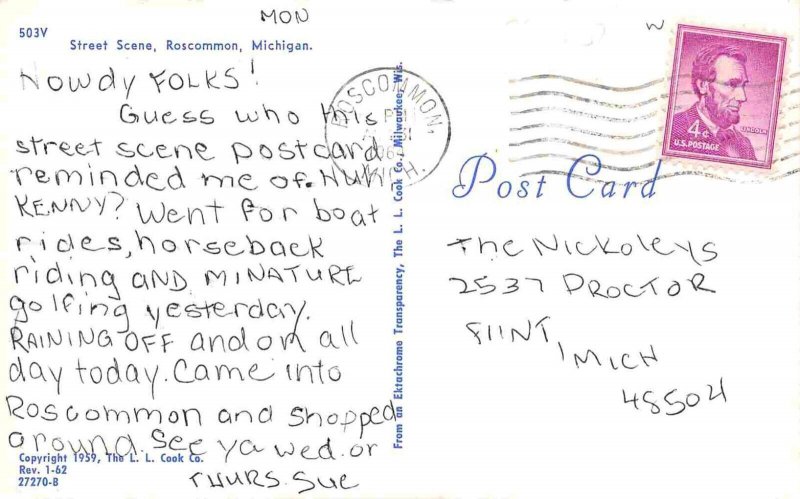 MON
503V
Street Scene, Roscommon, Michigan.
Howdy FOLKS!
Guess who this
street scene postcard
reminded me of. HUH
KENNY? Went for boat
rides, horseback
riding AND MINATURE
golfing yesterday.
RAINING OFF and on all
day today. Came into
Roscommon and shopped
around. See ya wed. or
THURS. Sue
Copyright 1959, The L. L. Cook Co.
Rev. 1-62
27270-B
From an Ektachrome Transparency, The L. L. Cook Co., Milwaukee, Wis.
ROSCOMMON,
PM
MICH.
W
4¢
LINCOLN
U.S. POSTAGE
Post Card
The Nickoleys
2537 PROCTOR
FlINT, MICH
48504